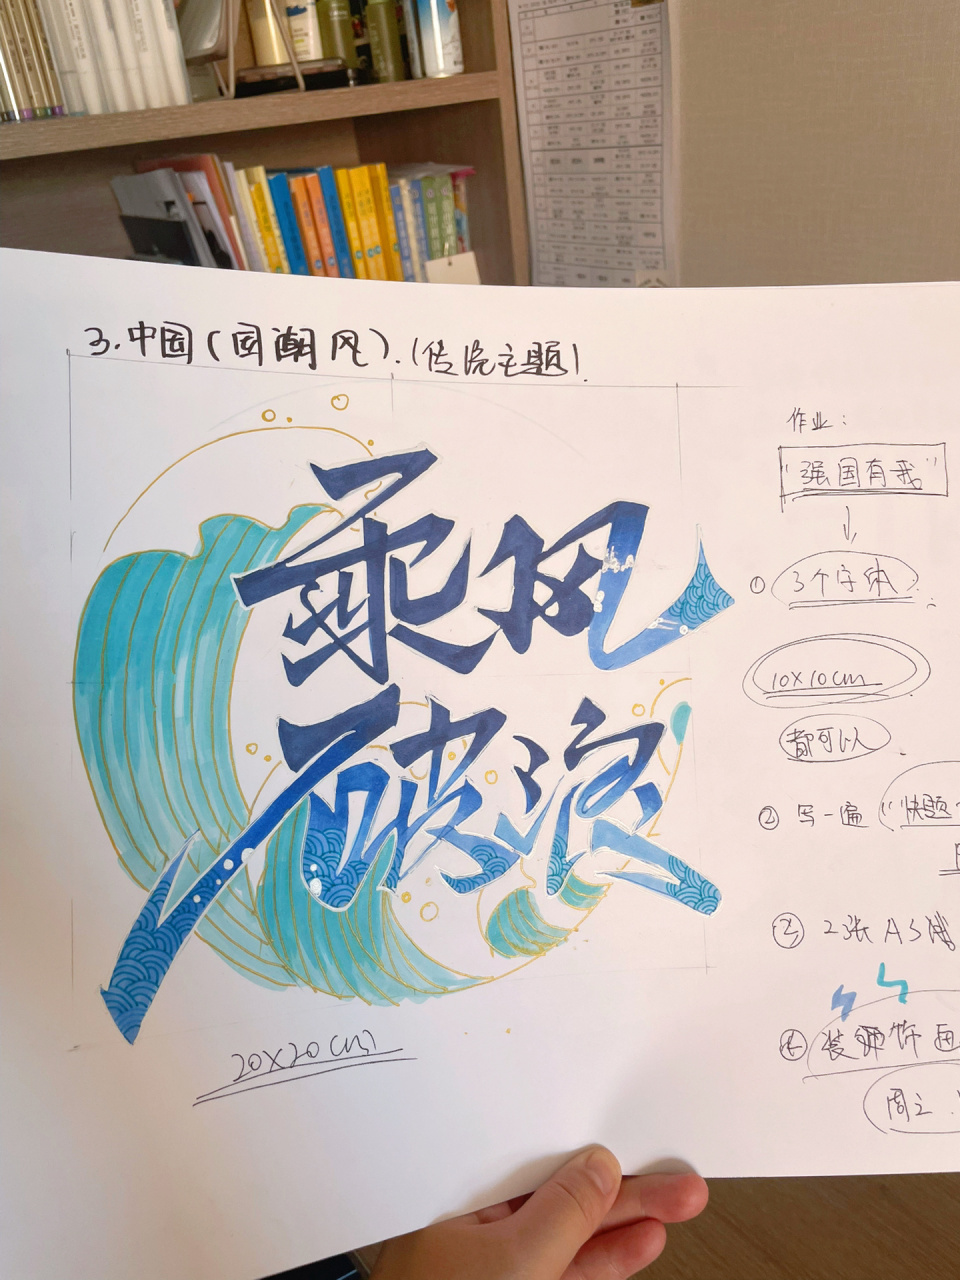 3.中国(国潮风).(传统主题)
乘风
破浪
20×20cm
作业:
"强国有我"
① 3个字体
10×10cm
都可以
② 写一遍 "快题
2张A3
④ 装饰
周立